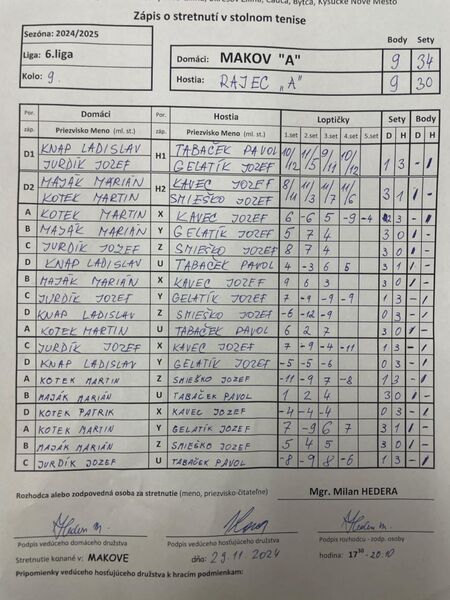 Zápis o stretnutí v stolnom tenise
Sezóna: 2024/2025
Liga: 6.liga
Kolo: 9.
Body Sety
Domáci: MAKOV "A" 9 34
Hostia: RAJEC „A" 9 30
Por. Domáci Por. Hostia Loptičky Sety Body
záp. Priezvisko Meno (ml. st.) záp. Priezvisko Meno (ml. st.) 1.set 2.set 3.set 4.set 5.set D H D H
D1 KNAP LADISLAV H1 TABAČEK PAVOL 10/12 11/5 9/11 10/12 1 3 - 1
JURDÍK JOZEF GELATÍK JOZEF
D2 MAJÁK MARIÁN H2 KAVEC JOZEF 8/11 11/3 11/7 11/6 3 1 1 -
KOTEK MARTIN SMIEŠKO JOZEF
A KOTEK MARTIN X KAVEC JOZEF 6 -6 5 -9 -4 3 - 1
B MAJÁK MARIÁN Y GELATÍK JOZEF 5 7 4 3 0 1 -
C JURDÍK JOZEF Z SMIEŠKO JOZEF 8 7 4 3 0 1 -
D KNAP LADISLAV U TABAČEK PAVOL 4 -3 6 5 3 1 1 -
B MAJÁK MARIÁN X KAVEC JOZEF 9 6 3 3 0 1 -
C JURDÍK JOZEF Y GELATÍK JOZEF 7 -9 -9 -9 1 3 - 1
D KNAP LADISLAV Z SMIEŠKO JOZEF -6 -12 -9 0 3 - 1
A KOTEK MARTIN U TABAČEK PAVOL 6 2 7 3 0 1 -
C JURDÍK JOZEF X KAVEC JOZEF 7 -9 -4 -11 1 3 - 1
D KNAP LADISLAV Y GELATÍK JOZEF -5 -5 -6 0 3 - 1
A KOTEK MARTIN Z SMIEŠKO JOZEF -11 -9 7 -8 1 3 - 1
B MAJÁK MARIÁN U TABAČEK PAVOL 1 2 4 3 0 1 -
D KOTEK PATRIK X KAVEC JOZEF -4 -4 -4 0 3 - 1
A KOTEK MARTIN Y GELATÍK JOZEF 7 -9 6 7 3 1 1 -
B MAJÁK MARIÁN Z SMIEŠKO JOZEF 5 4 5 3 0 1 -
C JURDÍK JOZEF U TABAČEK PAVOL -8 -9 8 -6 1 3 - 1
Rozhodca alebo zodpovedná osoba za stretnutie (meno, priezvisko-čitateľne) Mgr. Milan HEDERA
Podpis vedúceho domáceho družstva Podpis vedúceho hosťujúceho družstva Podpis rozhodcu - zodp. osoby
Stretnutie konané v: MAKOVE dňa: 29.11.2024 hodina: 17³⁰-20:10
Pripomienky vedúceho hosťujúceho družstva k hracím podmienkam: